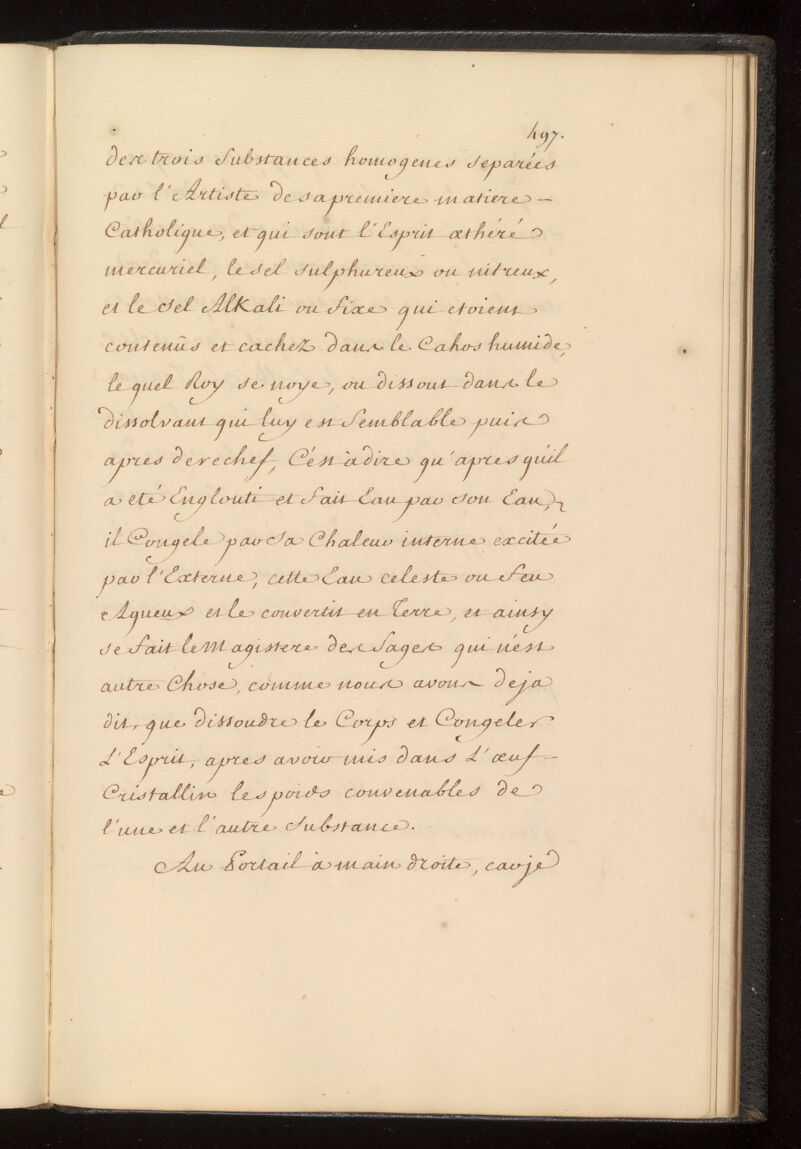 497.
des trois Substances homogenes separées
par l'Artiste de sa premiere matiere –
Catholique, et qui sont l'Esprit æthéré
mercuriel, le sel sulphureux ou nitreux,
et le sel Alkali ou fixe qui etoient
contenûs et cachez dans le Cahos humide,
le quel Roy se noye, ou dissout dans le
dissolvant qui luy est Semblable puis
apres derechef, C'est à dire qu'apres qu'il
a eté Englouti et fait Eau par son Eau,
il Congele par sa Chaleur interne excitée
par l'Externe, cette Eau celeste ou feu
Aqueux et le convertit en Terre, et ainsy
se fait le Magistere des Sages qui n'est
autre Chose, comme nous avons deja
dit, que dissoudre le Corps et Congeler
L'Esprit, apres avoir mis dans L'œuf –
Cristallin les poids convenables de
l'une et l'autre Substance.
Au Portail à main droite, car je